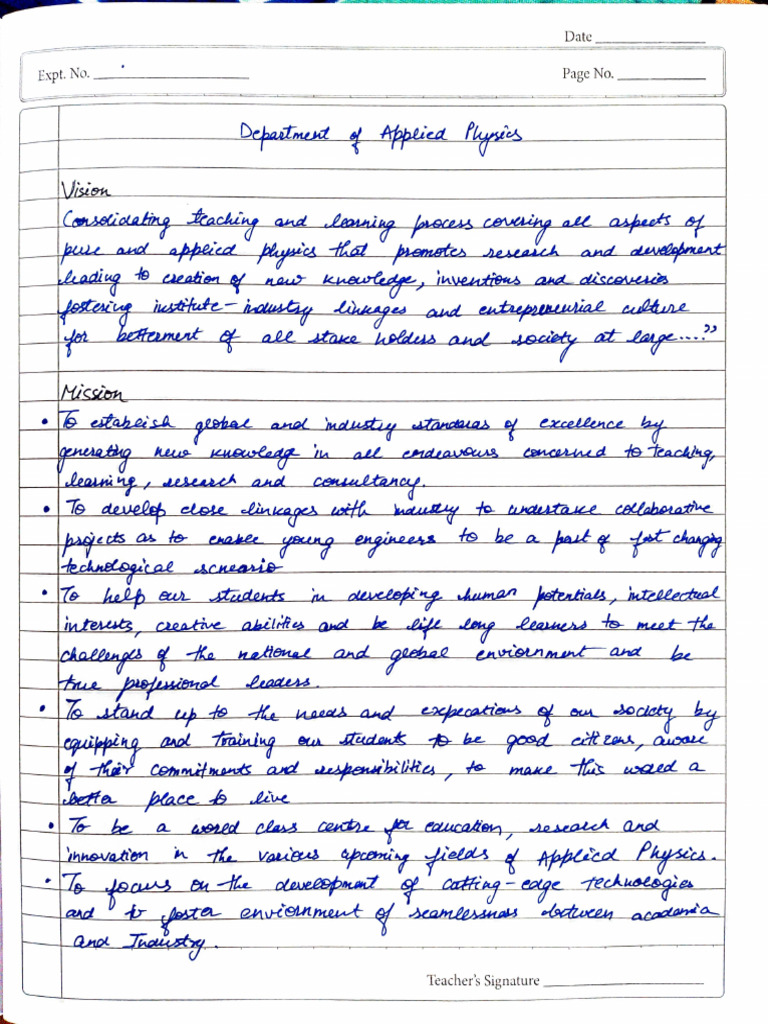 Date
Expt. No.
Page No.
Department of Applied Physics
Vision
Consolidating teaching and learning process covering all aspects of
pure and applied physics that promotes research and development
leading to creation of new knowledge, inventions and discoveries
fostering institute-industry linkages and entrepreneurial culture
for betterment of all stake holders and society at large....”
Mission
• To establish global and industry standards of excellence by
generating new knowledge in all endeavours concerned to teaching,
learning, research and consultancy.
• To develop close linkages with industry to undertake collaborative
projects as to enable young engineers to be a part of fast changing
technological scneario
• To help our students in developing human potentials, intellectual
interests, creative abilities and be life long learners to meet the
challenges of the national and global enviornment and be
true professional leaders.
• To stand up to the needs and expecations of our society by
equipping and training our students to be good citizens, aware
of their commitments and responsibilities, to make this world a
better place to live
• To be a world class centre for education, research and
innovation in the various upcoming fields of Applied Physics.
• To focus on the development of cutting-edge technologies
and to foster enviornment of seamlessness between academia
and Industry.
Teacher's Signature